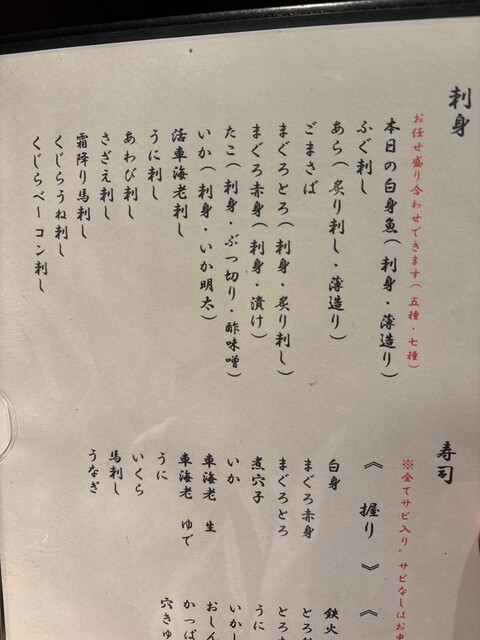 刺身
お任せ盛り合わせできます(五種・七種)
本日の白身魚(刺身・薄造り)
ふぐ刺し
あら(炙り刺し・薄造り)
ごまさば
まぐろとろ(刺身・炙り刺し)
まぐろ赤身(刺身・漬け)
たこ(刺身・ぶつ切り・酢味噌)
いか(刺身・いか明太)
活車海老刺し
うに刺し
あわび刺し
さざえ刺し
霜降り馬刺し
くじらうね刺し
くじらベーコン刺し
寿司
※全てサビ入り。サビなしはお
《握り》
白身
まぐろ赤身
まぐろとろ
煮穴子
いか
車海老 生
車海老 ゆで
うに
いくら
馬刺し
うなぎ
《
鉄火
とろ
とろ
うに
いか
おしん
かっぱ
穴きゅ